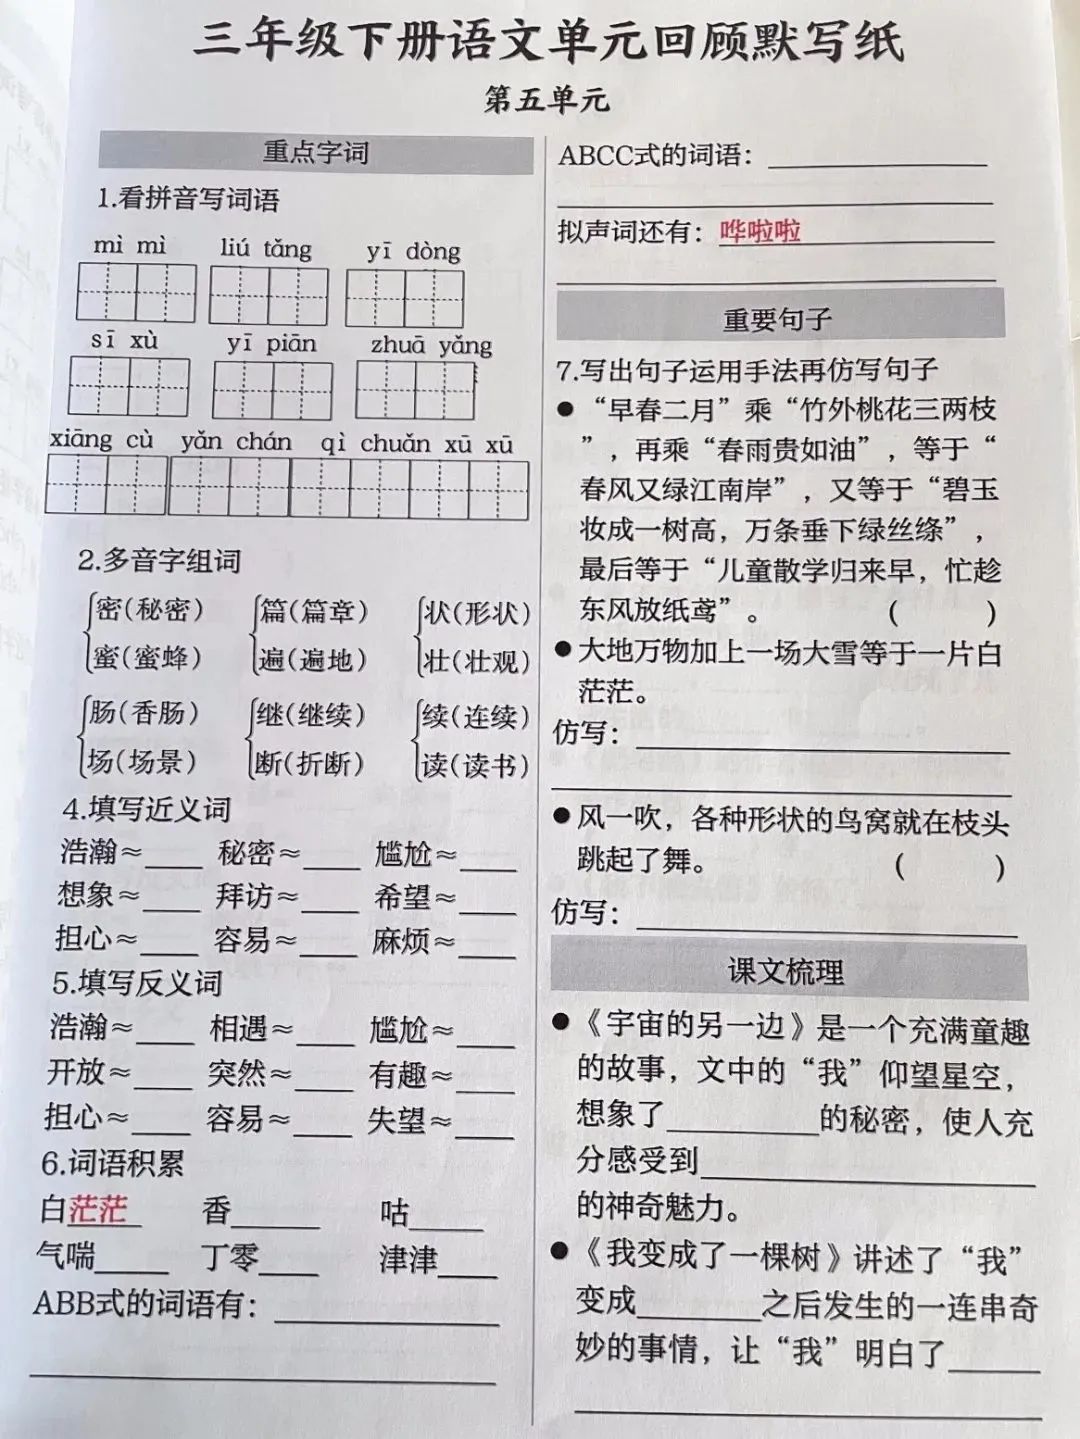 三年级下册语文单元回顾默写纸
第五单元
重点字词
1.看拼音写词语
mì mì liú tǎng yī dòng
sī xù yī piān zhuā yǎng
xiāng cù yǎn chán qì chuǎn xū xū
2.多音字组词
密(秘密) 篇(篇章) 状(形状)
蜜(蜜蜂) 遍(遍地) 壮(壮观)
肠(香肠) 继(继续) 续(连续)
场(场景) 断(折断) 读(读书)
4.填写近义词
浩瀚≈____ 秘密≈____ 尴尬≈____
想象≈____ 拜访≈____ 希望≈____
担心≈____ 容易≈____ 麻烦≈____
5.填写反义词
浩瀚≈____ 相遇≈____ 尴尬≈____
开放≈____ 突然≈____ 有趣≈____
担心≈____ 容易≈____ 失望≈____
6.词语积累
白茫茫 香____ 咕____
气喘____ 丁零____ 津津____
ABB式的词语有：____
ABCC式的词语：____
拟声词还有：哗啦啦
重要句子
7.写出句子运用手法再仿写句子
●“早春二月”乘“竹外桃花三两枝
”，再乘“春雨贵如油”，等于“
春风又绿江南岸”，又等于“碧玉
妆成一树高，万条垂下绿丝绦”，
最后等于“儿童散学归来早，忙趁
东风放纸鸢”。 ( )
●大地万物加上一场大雪等于一片白
茫茫。
仿写：____
●风一吹，各种形状的鸟窝就在枝头
跳起了舞。 ( )
仿写：____
课文梳理
●《宇宙的另一边》是一个充满童趣
的故事，文中的“我”仰望星空，
想象了____的秘密，使人充
分感受到____
的神奇魅力。
●《我变成了一棵树》讲述了“我”
变成____之后发生的一连串奇
妙的事情，让“我”明白了____